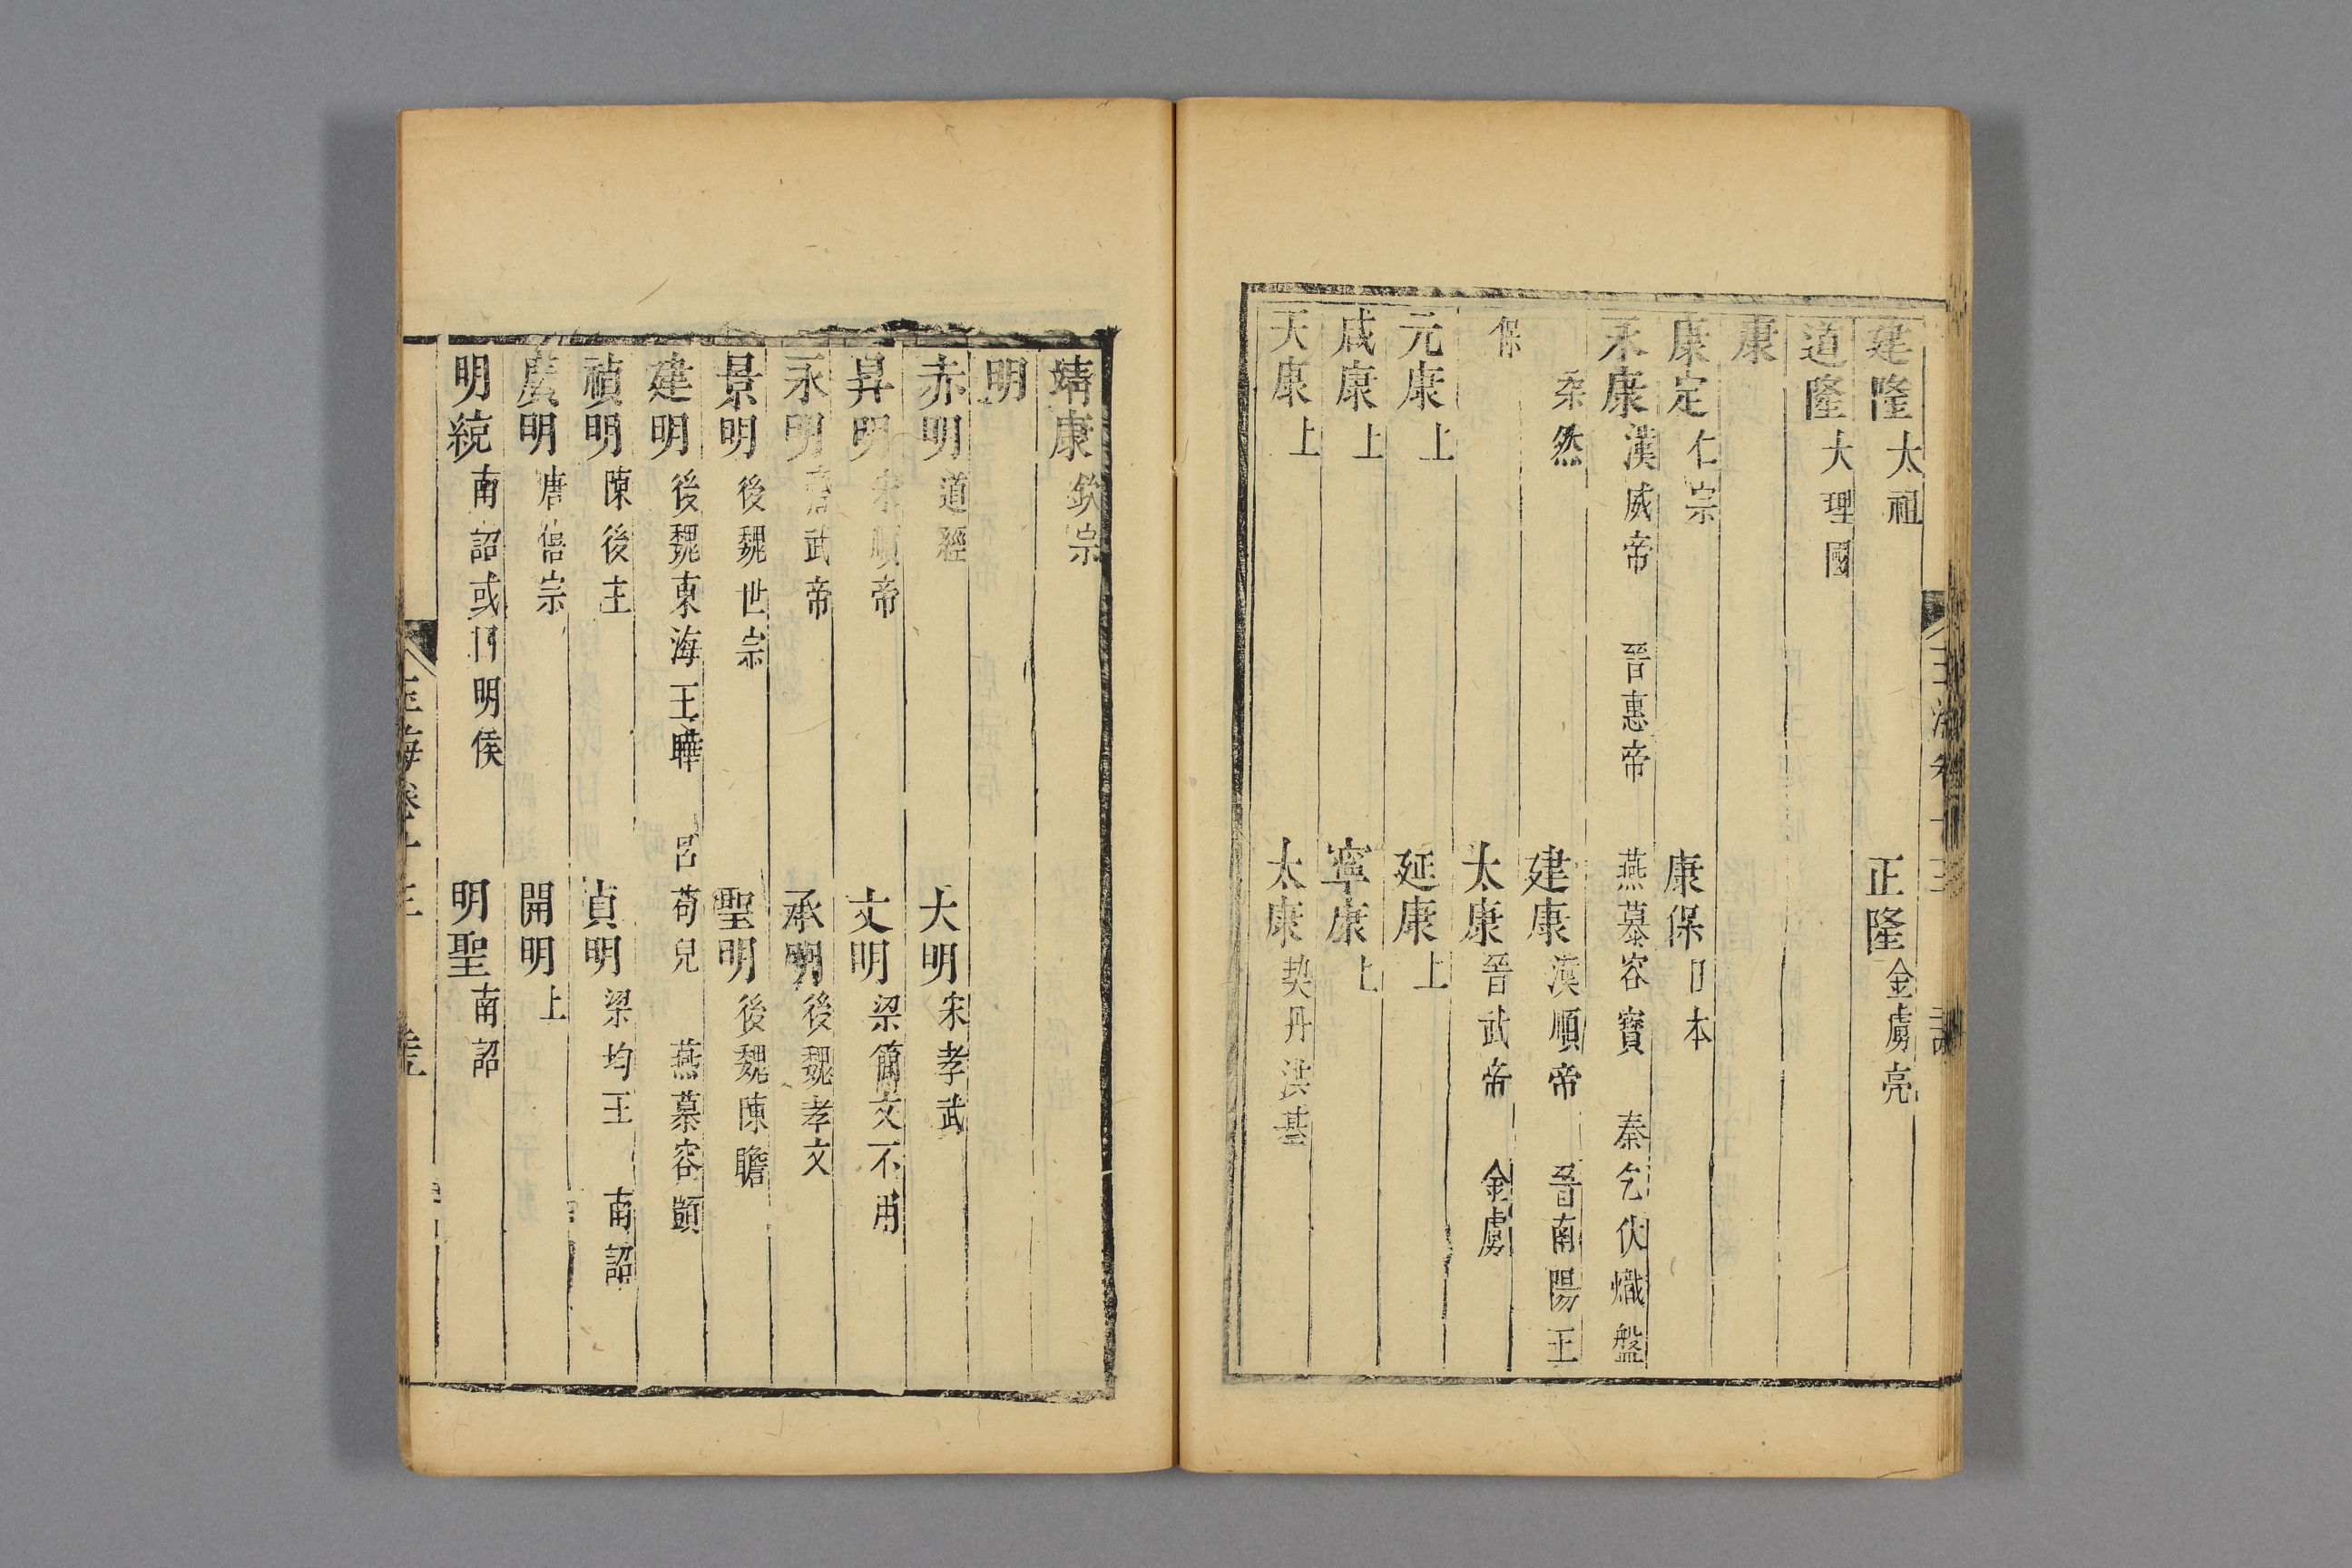 建隆太祖　正隆金虜亮
道隆大理國
康
康定仁宗　康保日本
永康漢威帝　晉惠帝　燕慕容寶　秦乞伏熾盤
柔然　建康漢順帝　晉南陽王
保　太康晉武帝　金虜
元康上　延康上
咸康上　寧康上
天康上　太康契丹洪基
靖康欽宗
明
赤明道經　大明宋孝武
昇明宋順帝　文明梁簡文不用
永明齊武帝　承明後魏孝文
景明後魏世宗　聖明後魏陳瞻
建明後魏東海王曄　呂苟兒　燕慕容顗
禎明陳後主　貞明梁均王　南詔
廣明唐僖宗　開明上
明統南詔或曰明侯　明聖南詔
玉海卷十三